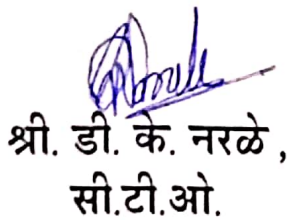 श्री. डी. के. नरळे,
सी.टी.ओ.